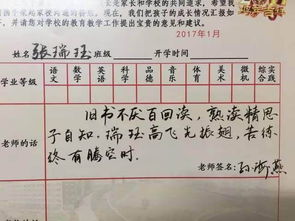 是家长和学校的共同追求,希望
家校沟通的方式,现在,我们把孩子的成长情况汇报如
下,并请您对学校的教育教学工作提出宝贵的意见和建议。
2017年1月
姓名 张瑞珏 班级 开学时间
学业等级 语文 数学 英语 科学 品德 音乐 体育 美术 微机 综合实践
老师的话
旧书不厌百回读,熟读精思
子自知。瑞珏高飞光振翅,苦练
终有腾空时。
老师签名:孙淅燕